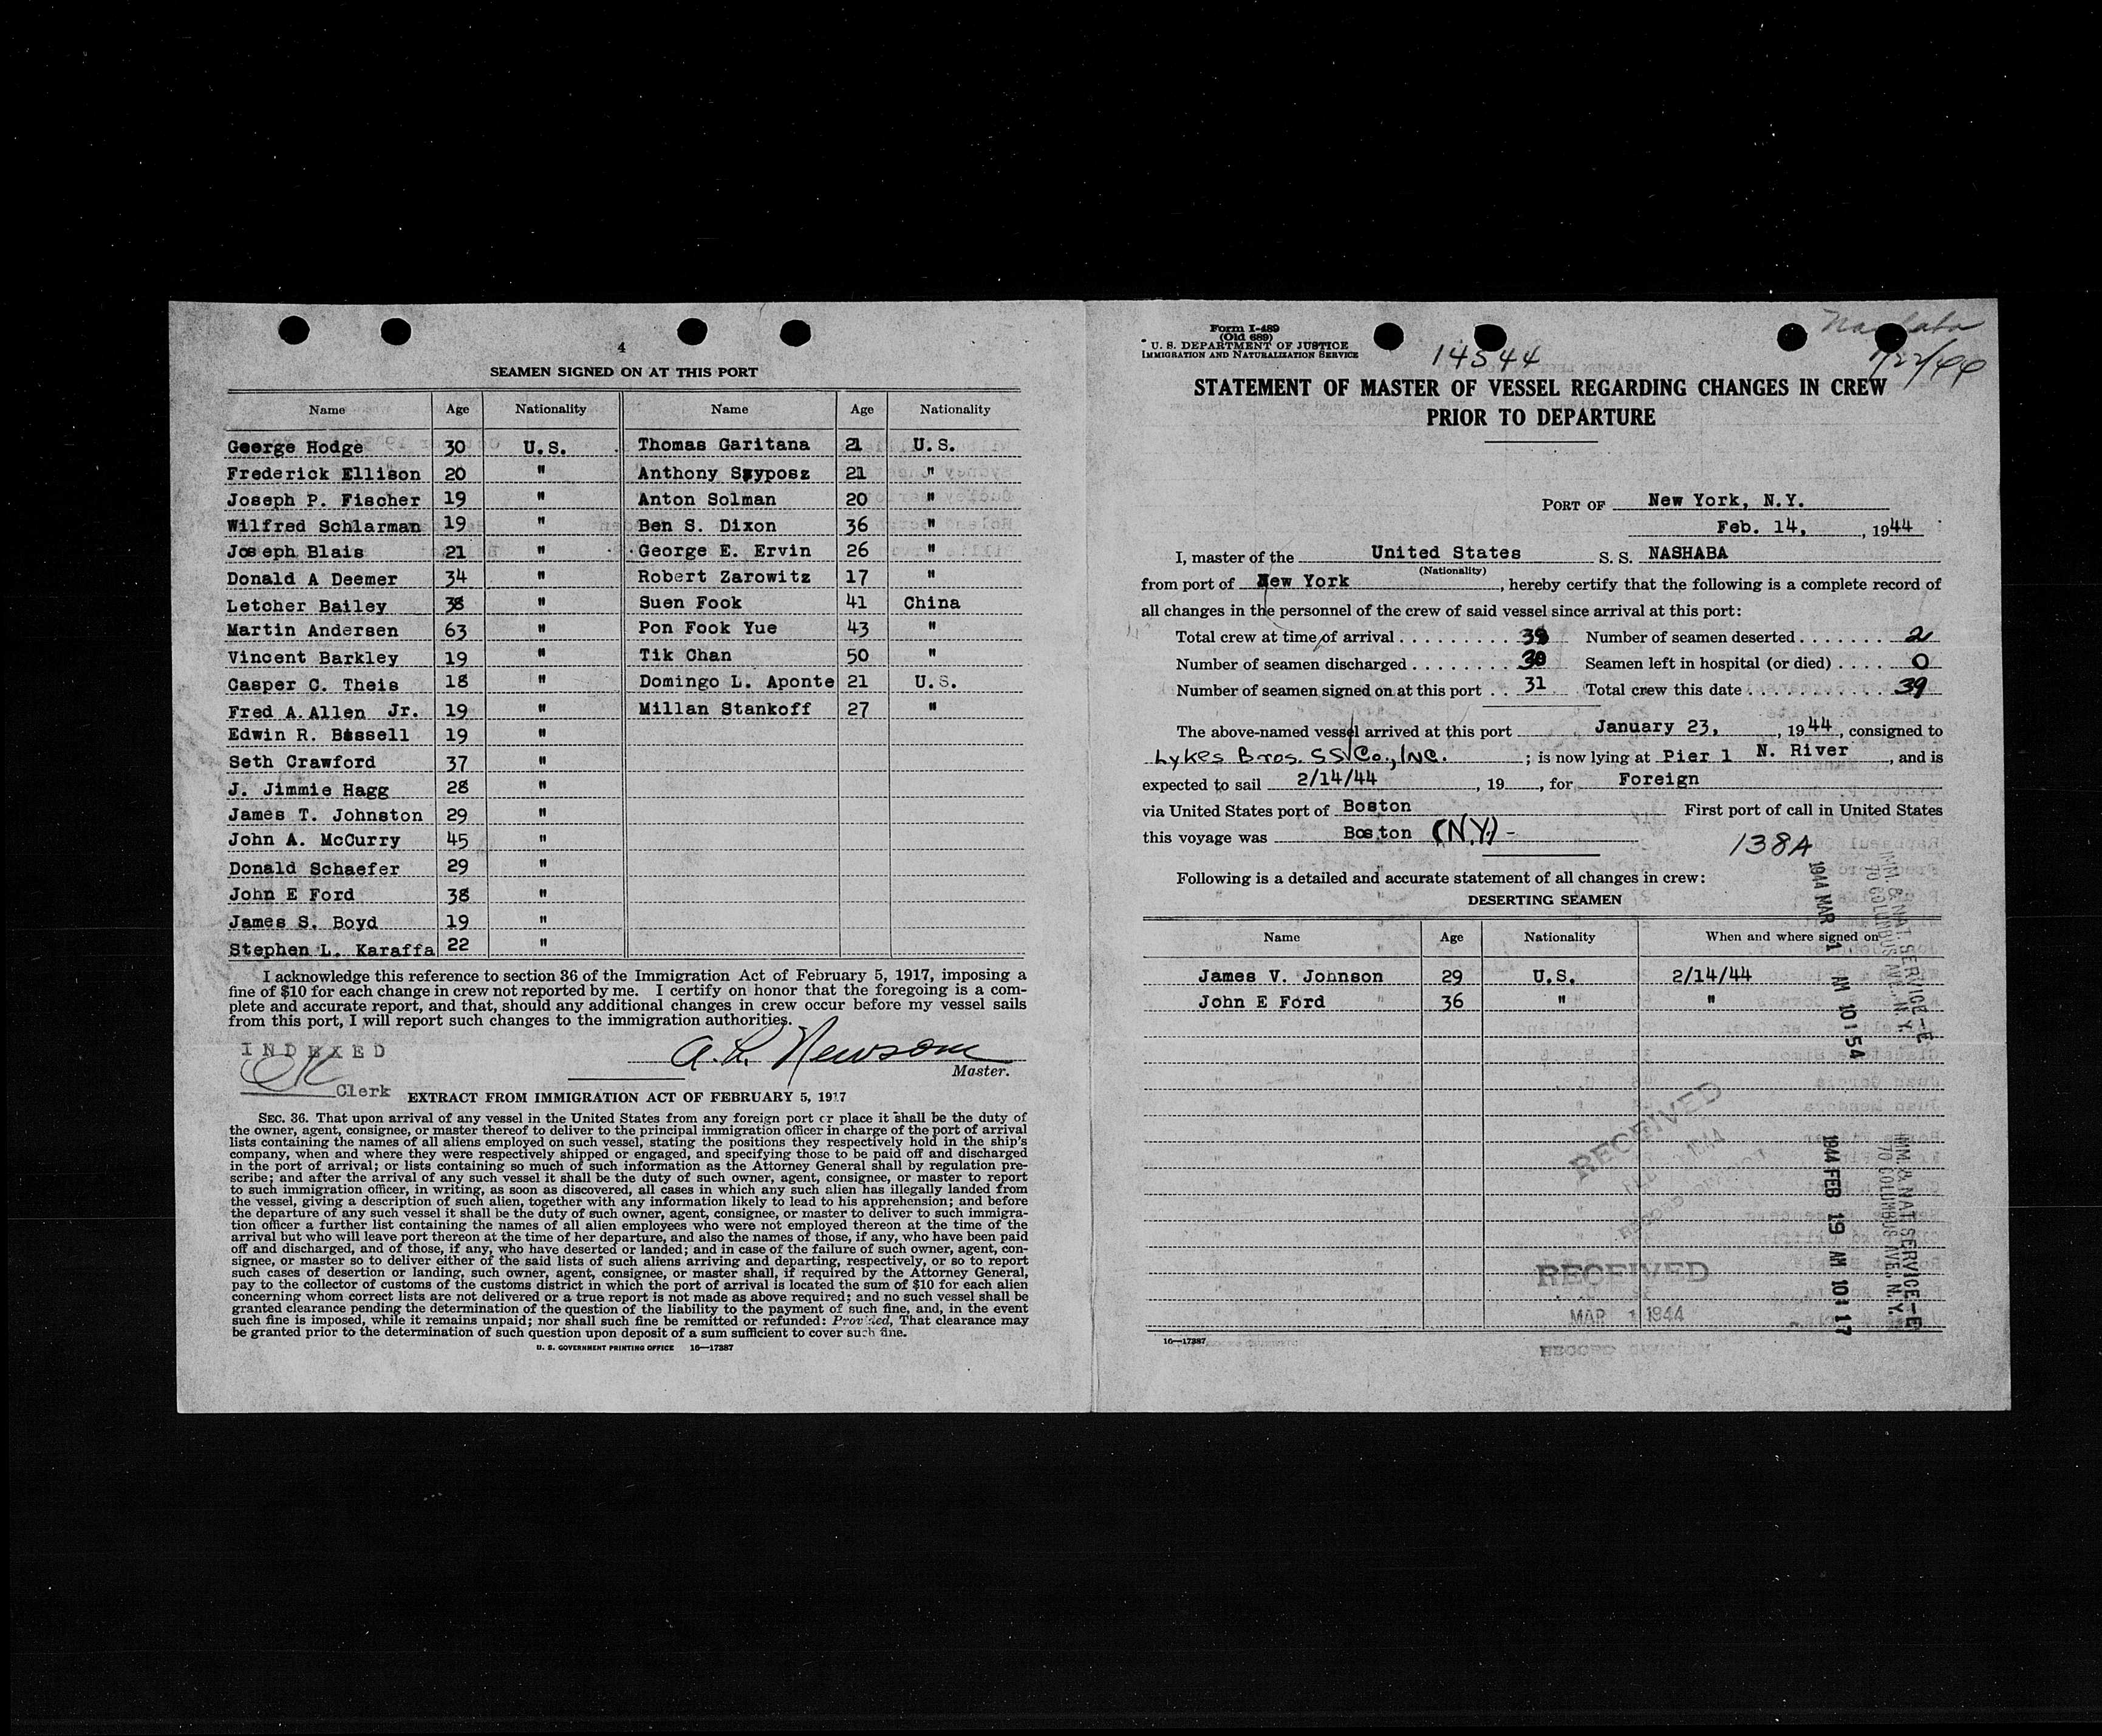 4
SEAMEN SIGNED ON AT THIS PORT
Name Age Nationality Name Age Nationality
George Hodge 30 U.S. Thomas Garitana 21 U.S.
Frederick Ellison 20 " Anthony Szyposz 21 "
Joseph P. Fischer 19 " Anton Solman 20 "
Wilfred Schlarman 19 " Ben S. Dixon 36 "
Joseph Blais 21 " George E. Ervin 26 "
Donald A Deemer 34 " Robert Zarowitz 17 "
Letcher Bailey 38 " Suen Fook 41 China
Martin Andersen 63 " Pon Fook Yue 43 "
Vincent Barkley 19 " Tik Chan 50 "
Casper C. Theis 18 " Domingo L. Aponte 21 U.S.
Fred A. Allen Jr. 19 " Millan Stankoff 27 "
Edwin R. Bissell 19 "
Seth Crawford 37 "
J. Jimmie Hagg 28 "
James T. Johnston 29 "
John A. McCurry 45 "
Donald Schaefer 29 "
John E Ford 38 "
James S. Boyd 19 "
Stephen L. Karaffa 22 "
I acknowledge this reference to section 36 of the Immigration Act of February 5, 1917, imposing a
fine of $10 for each change in crew not reported by me. I certify on honor that the foregoing is a com-
plete and accurate report, and that, should any additional changes in crew occur before my vessel sails
from this port, I will report such changes to the immigration authorities.
INDEXED
A. L. Newsom
Master.
Clerk
EXTRACT FROM IMMIGRATION ACT OF FEBRUARY 5, 1917
SEC. 36. That upon arrival of any vessel in the United States from any foreign port or place it shall be the duty of
the owner, agent, consignee, or master thereof to deliver to the principal immigration officer in charge of the port of arrival
lists containing the names of all aliens employed on such vessel, stating the positions they respectively hold in the ship's
company, when and where they were respectively shipped or engaged, and specifying those to be paid off and discharged
in the port of arrival; or lists containing so much of such information as the Attorney General shall by regulation pre-
scribe; and after the arrival of any such vessel it shall be the duty of such owner, agent, consignee, or master to report
to such immigration officer, in writing, as soon as discovered, all cases in which any such alien has illegally landed from
the vessel, giving a description of such alien, together with any information likely to lead to his apprehension; and before
the departure of any such vessel it shall be the duty of such owner, agent, consignee, or master to deliver to such immigra-
tion officer a further list containing the names of all alien employees who were not employed thereon at the time of the
arrival but who will leave port thereon at the time of her departure, and also the names of those, if any, who have been paid
off and discharged, and of those, if any, who have deserted or landed; and in case of the failure of such owner, agent, con-
signee, or master so to deliver either of the said lists of such aliens arriving and departing, respectively, or so to report
such cases of desertion or landing, such owner, agent, consignee, or master shall, if required by the Attorney General,
pay to the collector of customs of the customs district in which the port of arrival is located the sum of $10 for each alien
concerning whom correct lists are not delivered or a true report is not made as above required; and no such vessel shall be
granted clearance pending the determination of the question of the liability to the payment of such fine, and, in the event
such fine is imposed, while it remains unpaid; nor shall such fine be remitted or refunded: Provided, That clearance may
be granted prior to the determination of such question upon deposit of a sum sufficient to cover such fine.
U. S. GOVERNMENT PRINTING OFFICE 16—17387
Form I-489
(Old 689)
U. S. DEPARTMENT OF JUSTICE
IMMIGRATION AND NATURALIZATION SERVICE
14544
1/22/44
STATEMENT OF MASTER OF VESSEL REGARDING CHANGES IN CREW
PRIOR TO DEPARTURE
PORT OF New York, N.Y.
Feb. 14, , 1944
I, master of the United States S. S. NASHABA
(Nationality)
from port of New York , hereby certify that the following is a complete record of
all changes in the personnel of the crew of said vessel since arrival at this port:
Total crew at time of arrival 39 Number of seamen deserted 2
Number of seamen discharged 30 Seamen left in hospital (or died) 0
Number of seamen signed on at this port 31 Total crew this date 39
The above-named vessel arrived at this port January 23, , 1944, consigned to
Lykes Bros. SS Co., INC. ; is now lying at Pier 1 N. River , and is
expected to sail 2/14/44 , 19 , for Foreign
via United States port of Boston First port of call in United States
this voyage was Boston (N.Y.) -
138A
Following is a detailed and accurate statement of all changes in crew:
DESERTING SEAMEN
Name Age Nationality When and where signed on
James V. Johnson 29 U.S. 2/14/44
John E Ford 36 " "
IMM. & NAT. SERVICE-E
70 COLUMBUS AVE., N.Y.
1944 MAR 1 AM 10:54
RECEIVED
IMM. & NAT. SERVICE-E
70 COLUMBUS AVE., N.Y.
1944 FEB 19 AM 10:17
RECEIVED
MAR 1 1944
RECORD DIVISION
16—17387